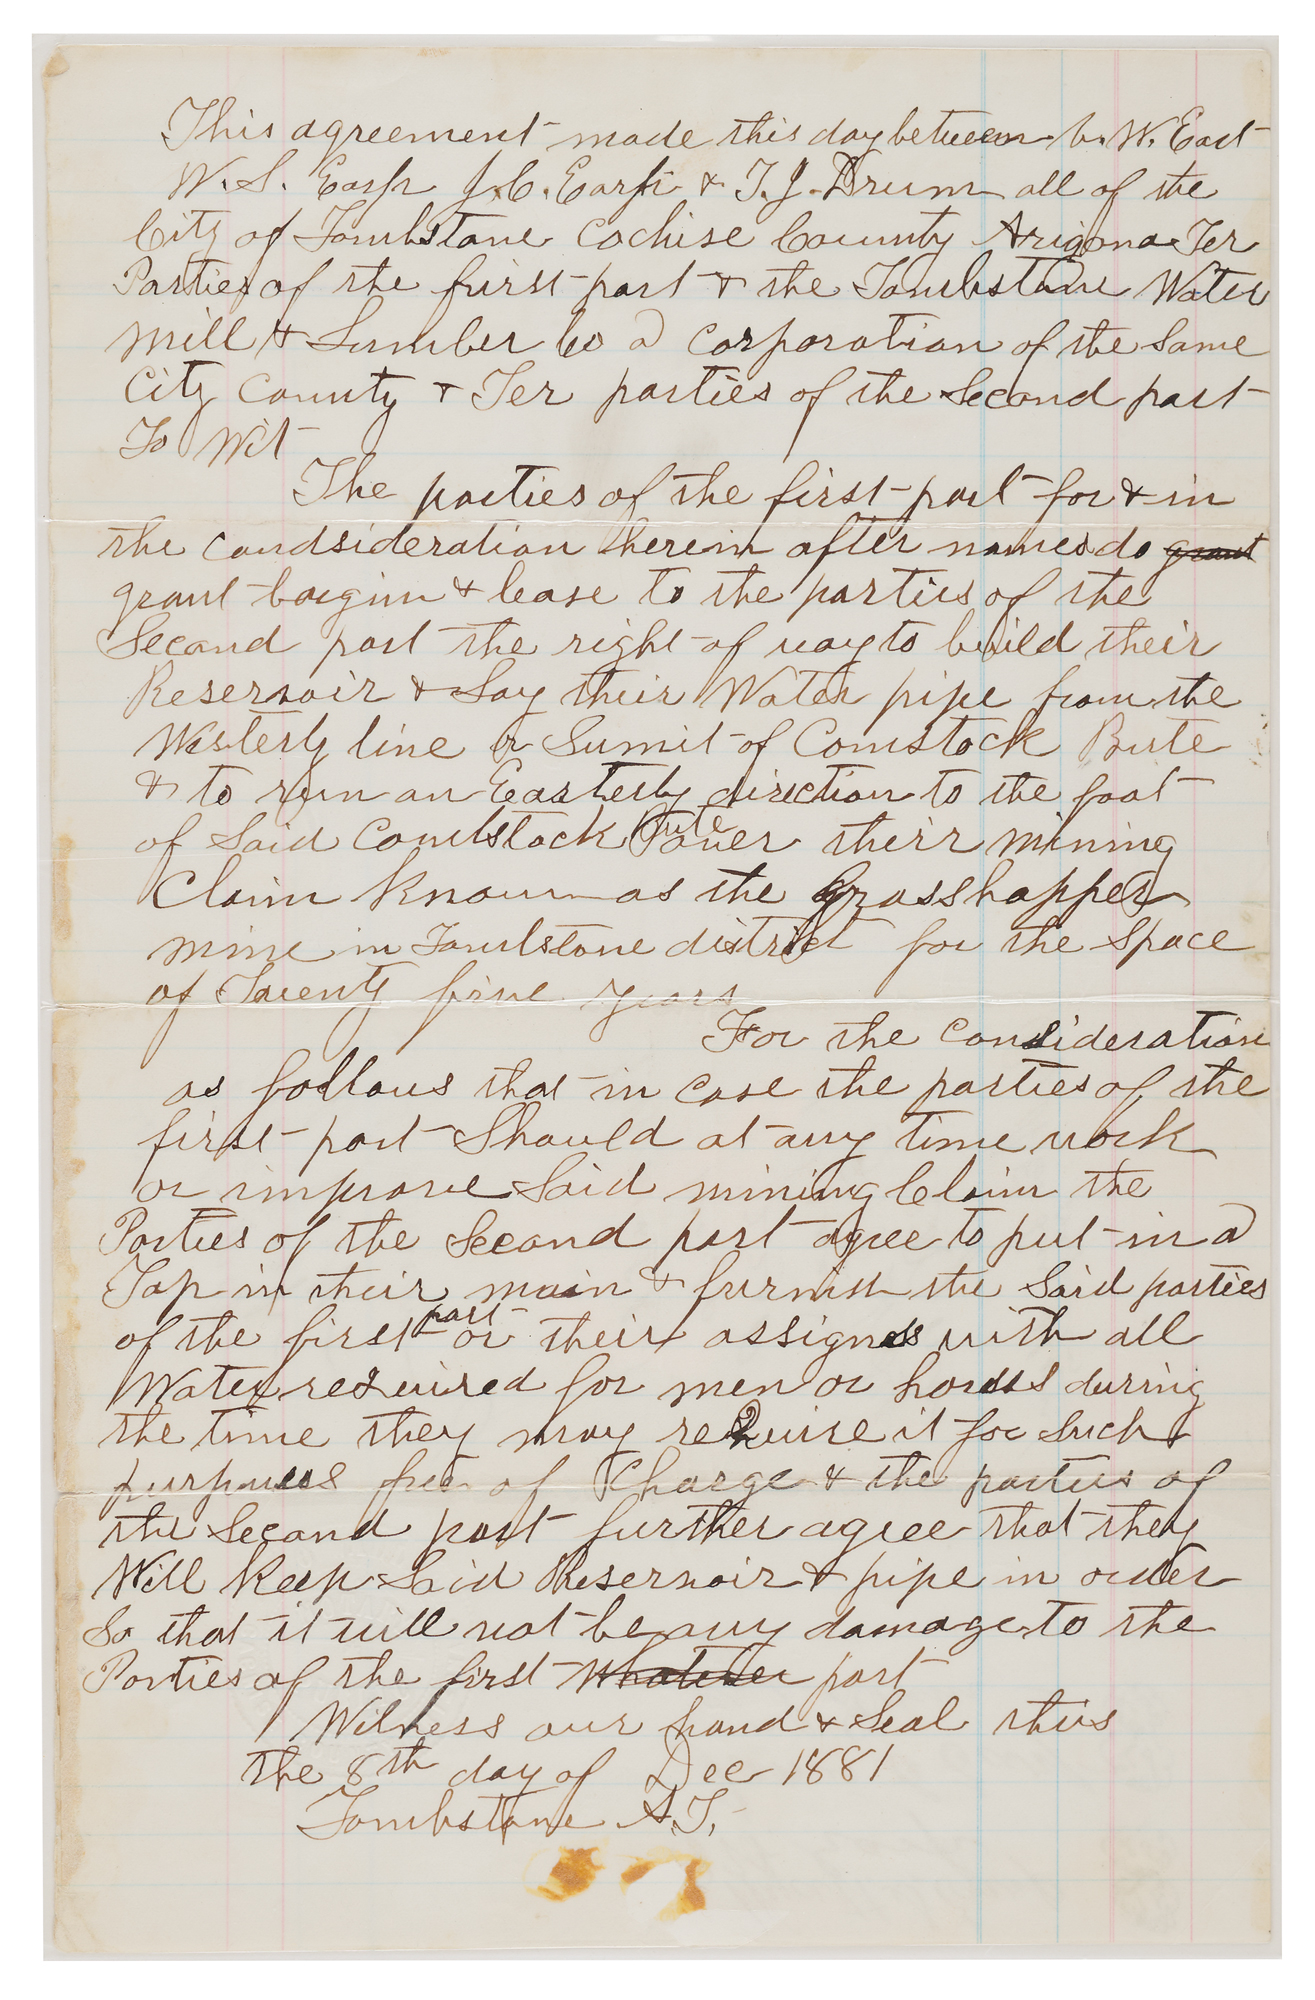 This agreement made this day between C. W. East
W. S. Earp J. C. Earp & T. J. Drum all of the
City of Tombstone Cochise County Arizona Ter
Parties of the first part & the Tombstone Water
Mill & Lumber Co a corporation of the Same
City County & Ter parties of the Second part
To Wit
The parties of the first part for & in
the condsideration herein after names do grant
grant bargin & lease to the parties of the
Second part the right of way to build their
Reservoir & Lay their Water pipe from the
Westerly line or Sumit of Comstock Bute
& to run an Easterly direction to the foot
of Said Comstock Bute over their mining
Claim Known as the Grasshopper
mine in Tombstone district for the Space
of Twenty five years
For the consideration
as follows that in case the parties of the
first part Should at any time work
or improve Said mining Claim the
Parties of the Second part agree to put in a
Tap in their main & furnish the Said parties
of the first part or their assigness with all
Water required for men or horses during
the time they may require it for Such
purposes free of Charge & the parties of
the Second part further agree that they
Will Keep Said Reservoir & pipe in order
So that it will not be any damage to the
Parties of the first Whatever part
Witness our hand & Seal this
the 8th day of Dec 1881
Tombstone A.T.